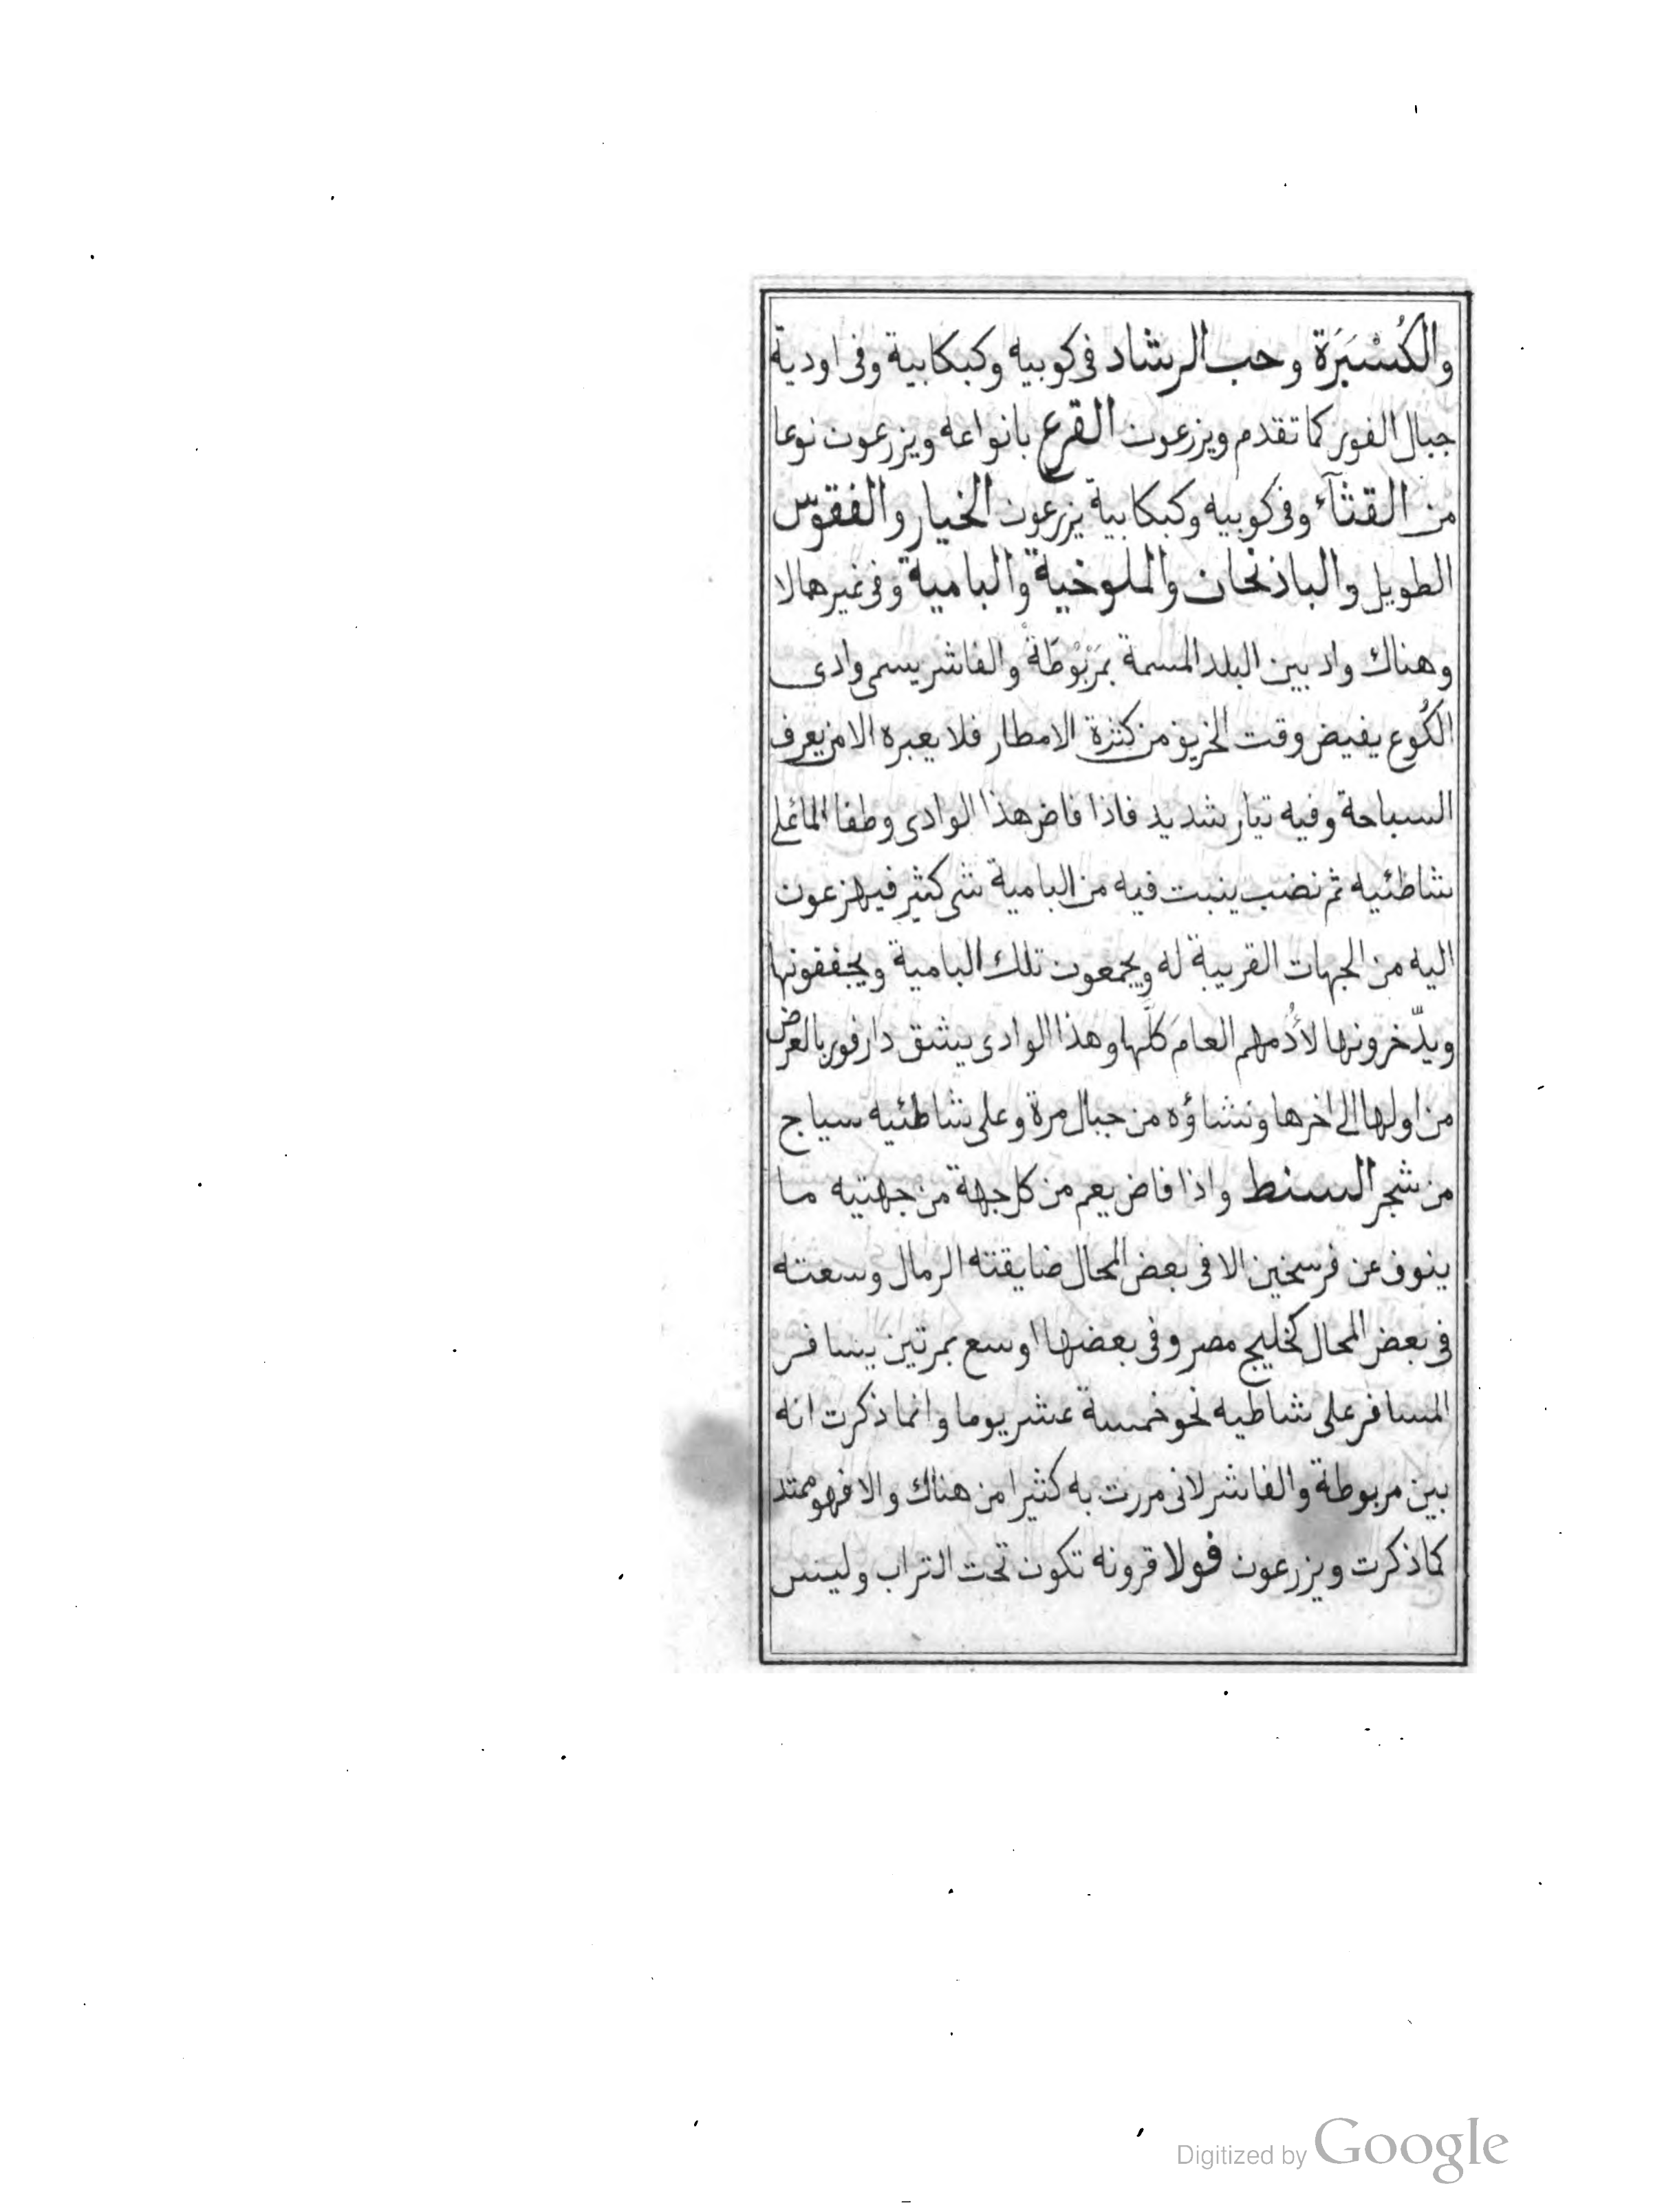 والكُسْبَرَة وحب الرشاد فى كوبيه وكبكابية وفى اودية
جبال الفور كما تقدم ويزرعون القرع بانواعه ويزرعون نوعا
من القثآء وفى كوبيه وكبكابية يزرعون الخيار والفقوّس
الطويل والباذنحان والملوخية والبامية وفى غيرهما لا
وهناك واد بين البلد المسمة بمَرْبُوْطَةْ والفاشر يسمى وادى
الكُوع يفيض وقت الخريف من كثرة الامطار فلا يعبره الا من يعرف
السباحة وفيه تيار شديد فاذا فاض هذا الوادى وطفا الما على
شاطئيه ثم نضب ينبت فيه من البامية شى كثير فيهزعون
اليه من الجهات القريبة له ويجمعون تلك البامية ويجففونها
ويدّخرونها لأُدُمهم العامَ كلَّها وهذا الوادى يشق دار فور بالعرض
من اولها الى اخرها ونشاؤه من جبال مرة وعلى شاطئيه سياج
من شجر السنط واذا فاض يعم من كل جهة من جهتيه ما
ينوف عن فرسخين الا فى بعض المحال ضايقته الرمال وسعته
فى بعض المحال كخليج مصر وفى بعضها اوسع بمرتين يسافر
المسافر على شاطيه نحو خمسة عشر يوما وانما ذكرت انه
بين مربوطة والفاشر لانى مررت به كثيرا من هناك والا فهو ممتد
كما ذكرت ويزرعون فولا قرونه تكون تحت التراب وليس
Digitized by Google